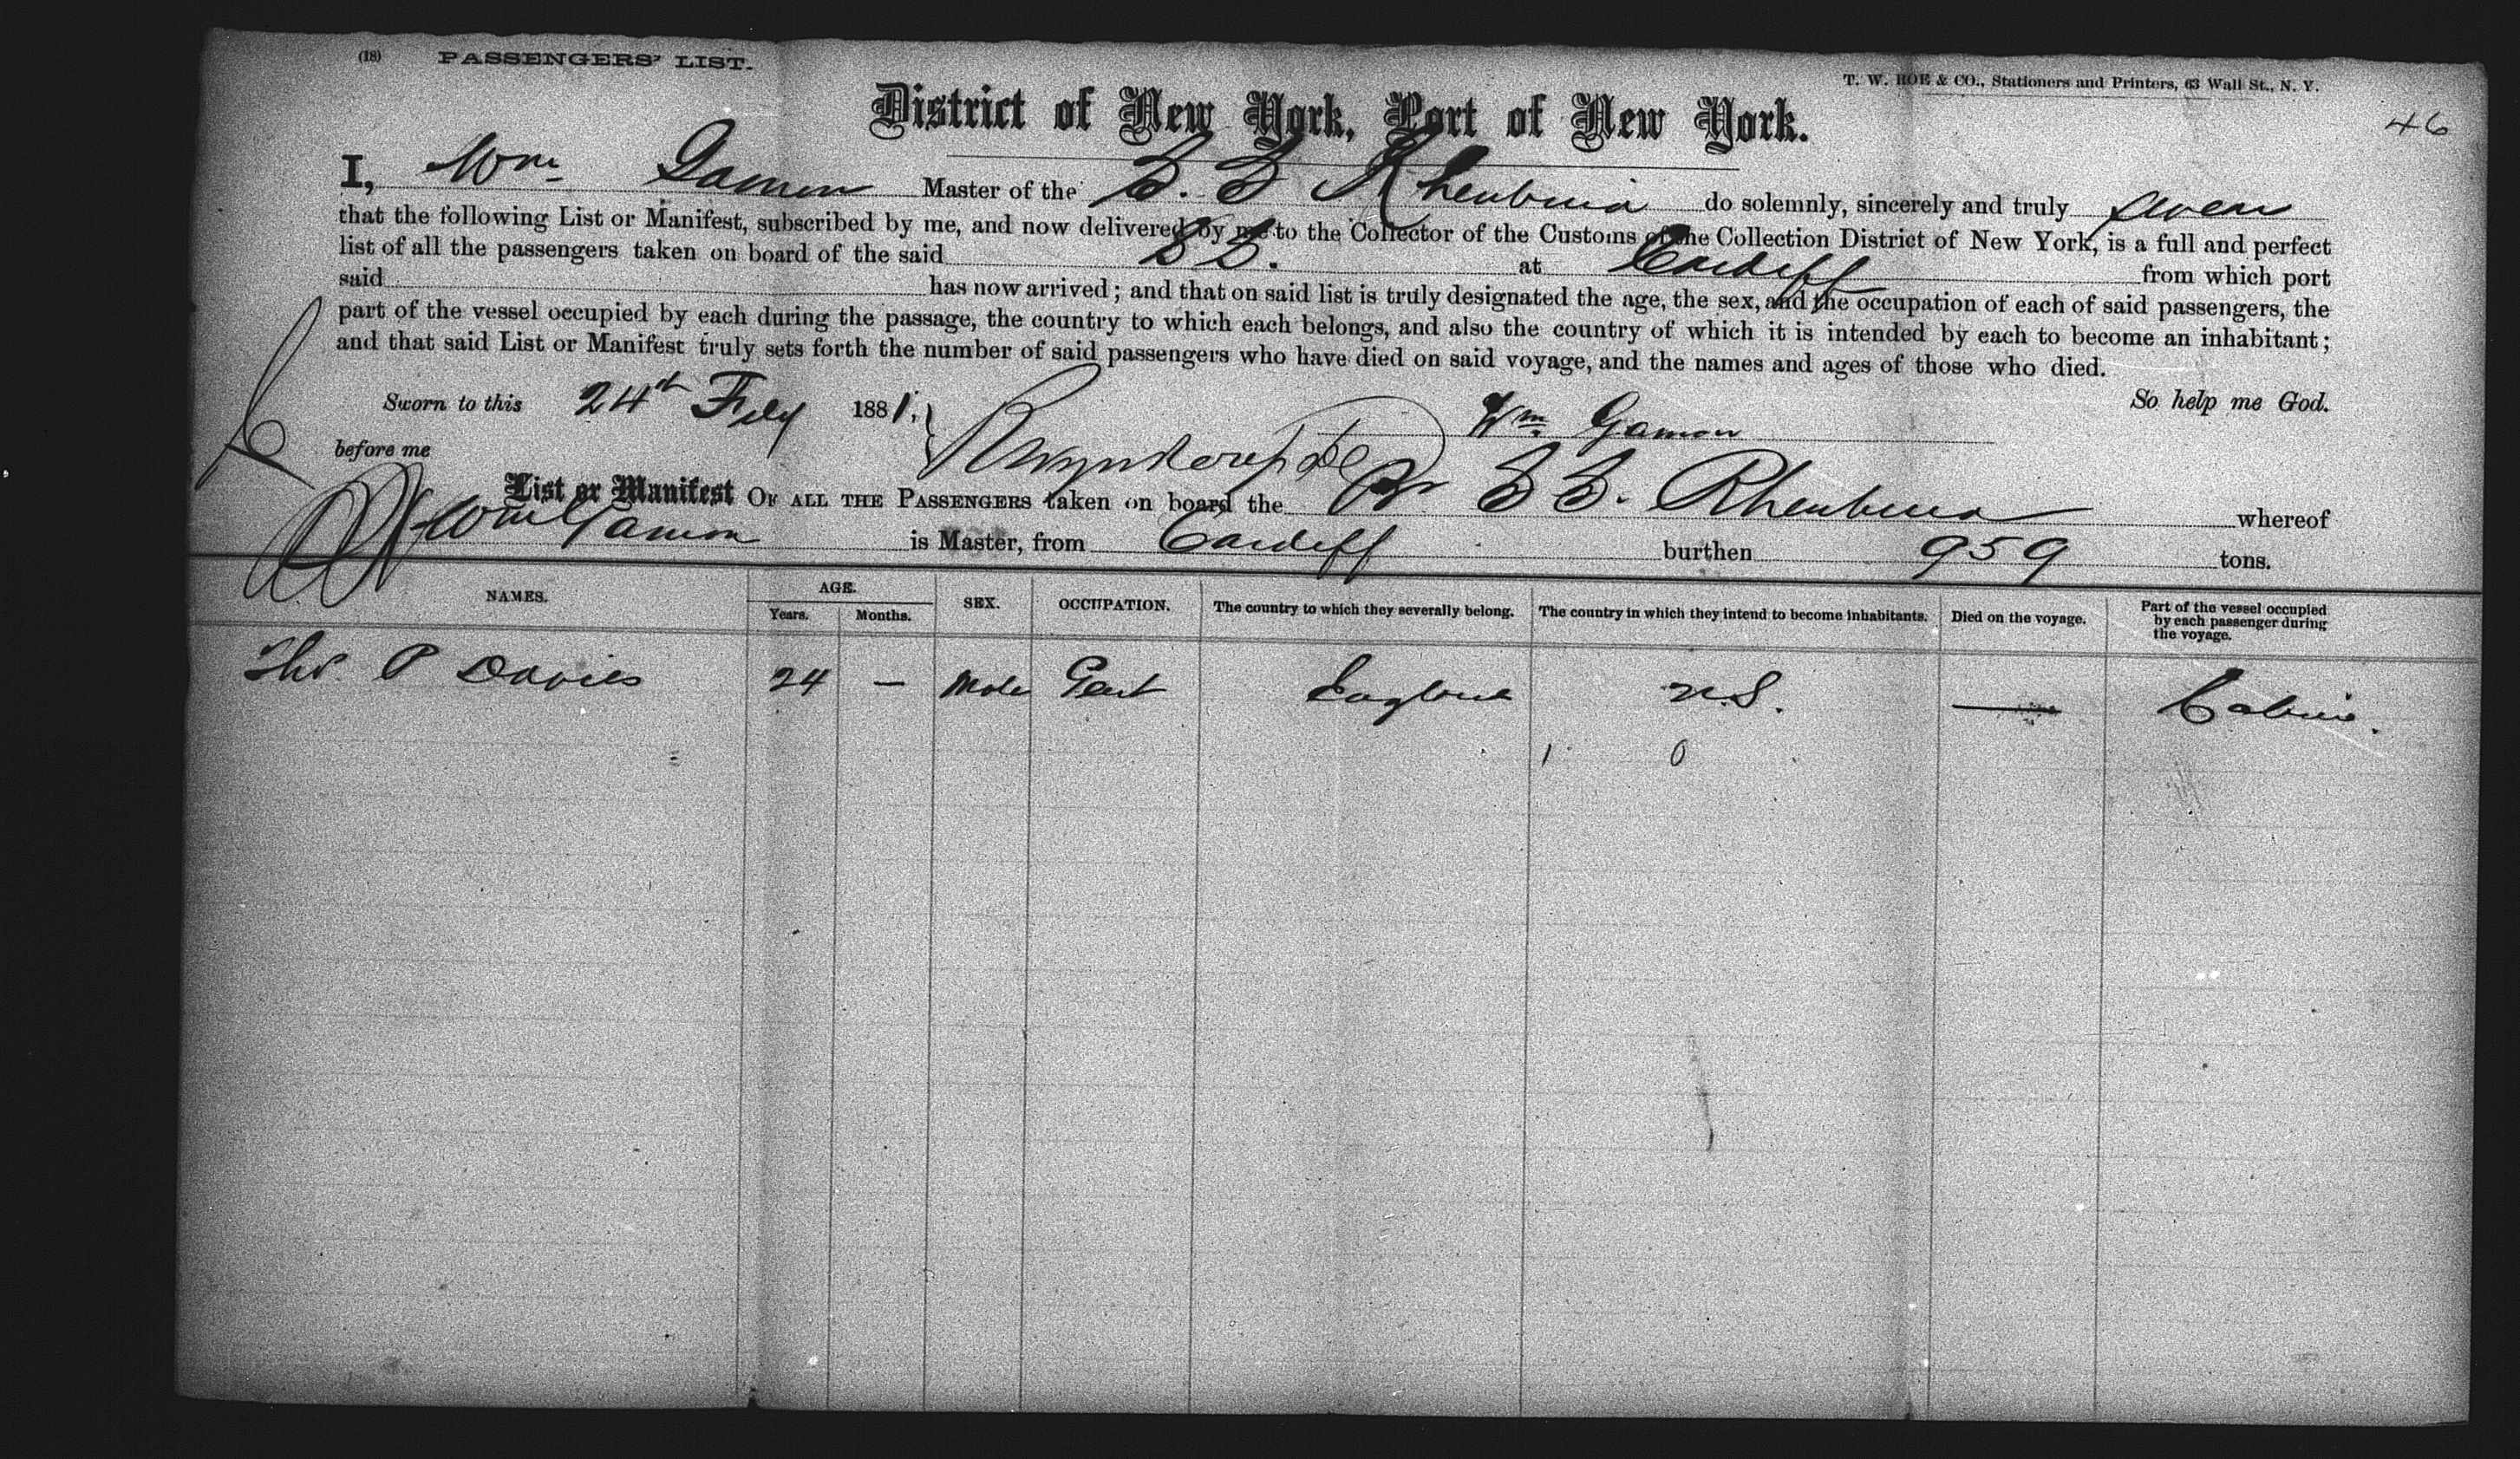 (18) PASSENGERS' LIST.
T. W. ROE & CO., Stationers and Printers, 63 Wall St., N. Y.
46
District of New York, Port of New York.
I, Wm Gamon Master of the S. S Rhenbina do solemnly, sincerely and truly swear
that the following List or Manifest, subscribed by me, and now delivered by me to the Collector of the Customs of the Collection District of New York, is a full and perfect
list of all the passengers taken on board of the said S S. at Cardiff from which port
said has now arrived; and that on said list is truly designated the age, the sex, and the occupation of each of said passengers, the
part of the vessel occupied by each during the passage, the country to which each belongs, and also the country of which it is intended by each to become an inhabitant;
and that said List or Manifest truly sets forth the number of said passengers who have died on said voyage, and the names and ages of those who died.
Sworn to this 24th Feby 1881. So help me God.
Wm Gamon
before me
List or Manifest OF ALL THE PASSENGERS taken on board the Br S S. Rhenbina whereof
Wm Gamon is Master, from Cardiff burthen 959 tons.
NAMES. AGE. Years. Months. SEX. OCCUPATION. The country to which they severally belong. The country in which they intend to become inhabitants. Died on the voyage. Part of the vessel occupied by each passenger during the voyage.
Thos. P Davies 24 — Male Gent England U.S. — Cabin.
1 0